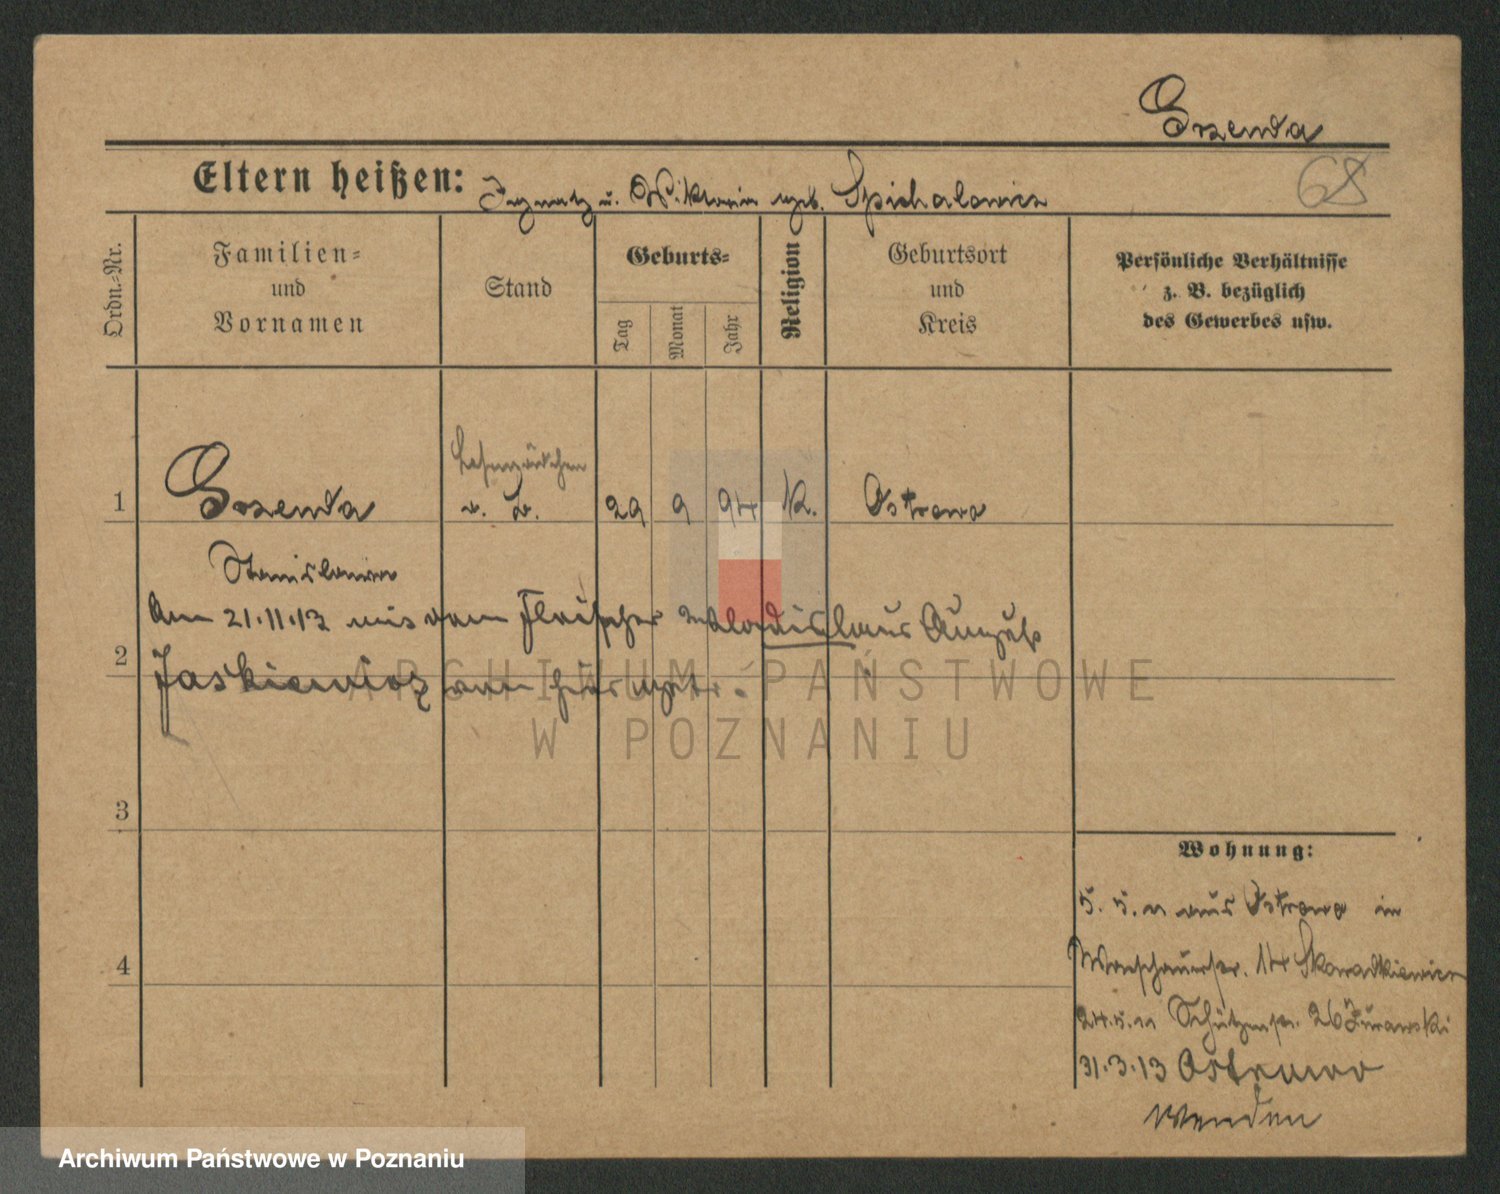 Gozenda
68
Eltern heißen: Ignatz u. Wiktoria geb. Spichalowicz
Ordn.-Nr.
Familien-
und
Vornamen
Stand
Geburts-
Tag
Monat
Jahr
Religion
Geburtsort
und
Kreis
Persönliche Verhältnisse
z. B. bezüglich
des Gewerbes usw.
1 29 9 94 k. Ostrowo
Stanislawa
Am 21.11.13 mit dem Fleischer Wladislaus August
2
Jaskiewicz von hier
3
4
Wohnung:
5. 5. 11 aus Ostrowo in
Warschauerstr. 14 Skowadkiewicz
24.5.11 Schützenstr. 26 Żurawski
31.3.13 Ostrowo
Wenden
ARCHIWUM PAŃSTWOWE
W POZNANIU
Archiwum Państwowe w Poznaniu